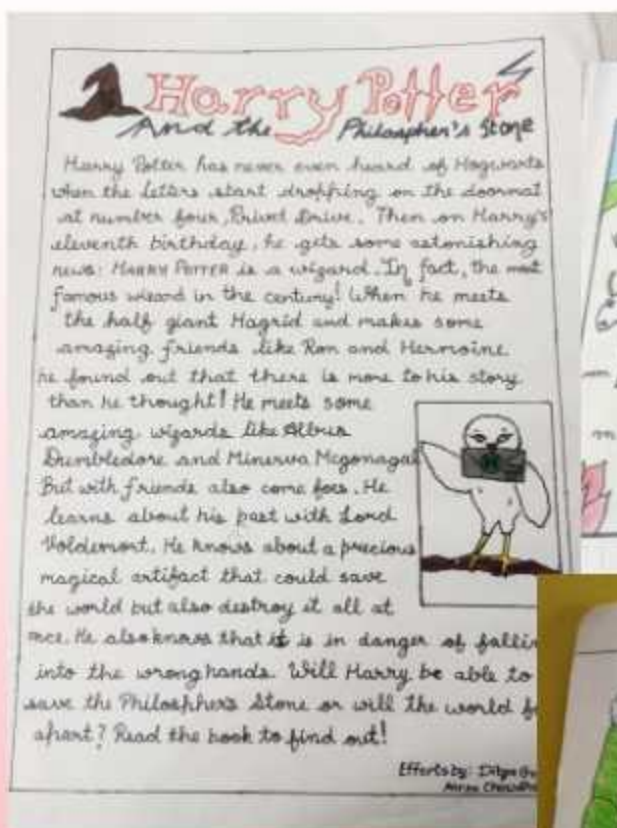 Harry Potter
And the Philospher's Stone
Harry Potter has never even heard of Hogwarts
when the letters start dropping on the doormat
at number four, Privet Drive. Then on Harry's
eleventh birthday, he gets some astonishing
news: HARRY POTTER is a wizard. In fact, the most
famous wizard in the century! When he meets
the half giant Hagrid and makes some
amazing friends like Ron and Hermoine
he found out that there is more to his story
than he thought! He meets some
amazing wizards like Albus
Dumbledore and Minerva Mcgonagal
But with friends also come foes. He
learns about his past with Lord
Voldemort. He knows about a precious
magical artifact that could save
the world but also destroy it all at
once. He also knows that it is in danger of fallin
into the wrong hands. Will Harry be able to
save the Philosphers Stone or will the world
apart? Read the book to find out!
Efforts by: